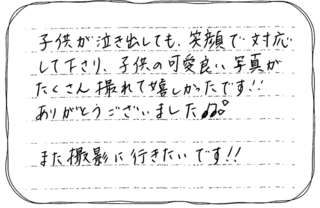 子供が泣き出しても、笑顔で対応
して下さり、子供の可愛良い写真が
たくさん撮れて嬉しかったです!!
ありがとうございました♪♪
また撮影に行きたいです!!